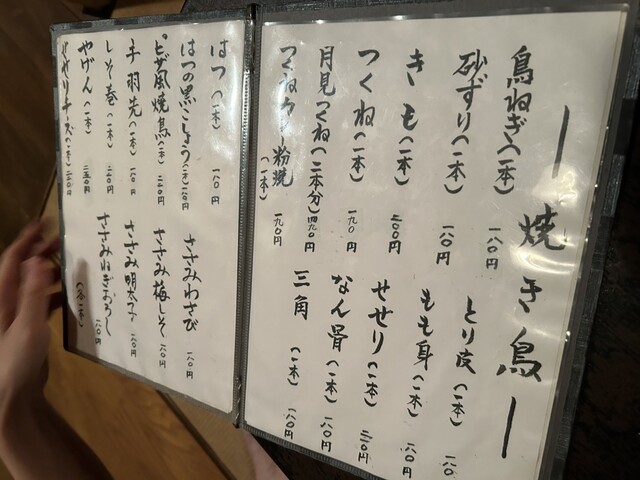 ー焼き鳥ー
鳥ねぎ(一本) 一八〇円
砂ずり(一本) 一八〇円
きも(一本) 二〇〇円
つくね(一本) 一九〇円
月見つくね(二本分) 四九〇円
つくねカレー粉焼(一本) 一九〇円
とり皮(一本) 一八〇
もも身(一本) 一八〇円
せせり(一本) 二二〇円
なん骨(一本) 一八〇円
三角(一本) 一八〇円
はつ(一本) 一八〇円
はつの黒こしょう(一本) 一八〇円
ピザ風焼鳥(一本) 二二〇円
手羽先(一本) 一八〇円
しそ巻(一本) 二二〇円
やげん(一本) 二五〇円
せせりチーズ(一本) 二三〇円
ささみわさび 一八〇円
ささみ梅しそ 一八〇円
ささみ明太子 一八〇円
ささみねぎおろし 一八〇円
(各一本)